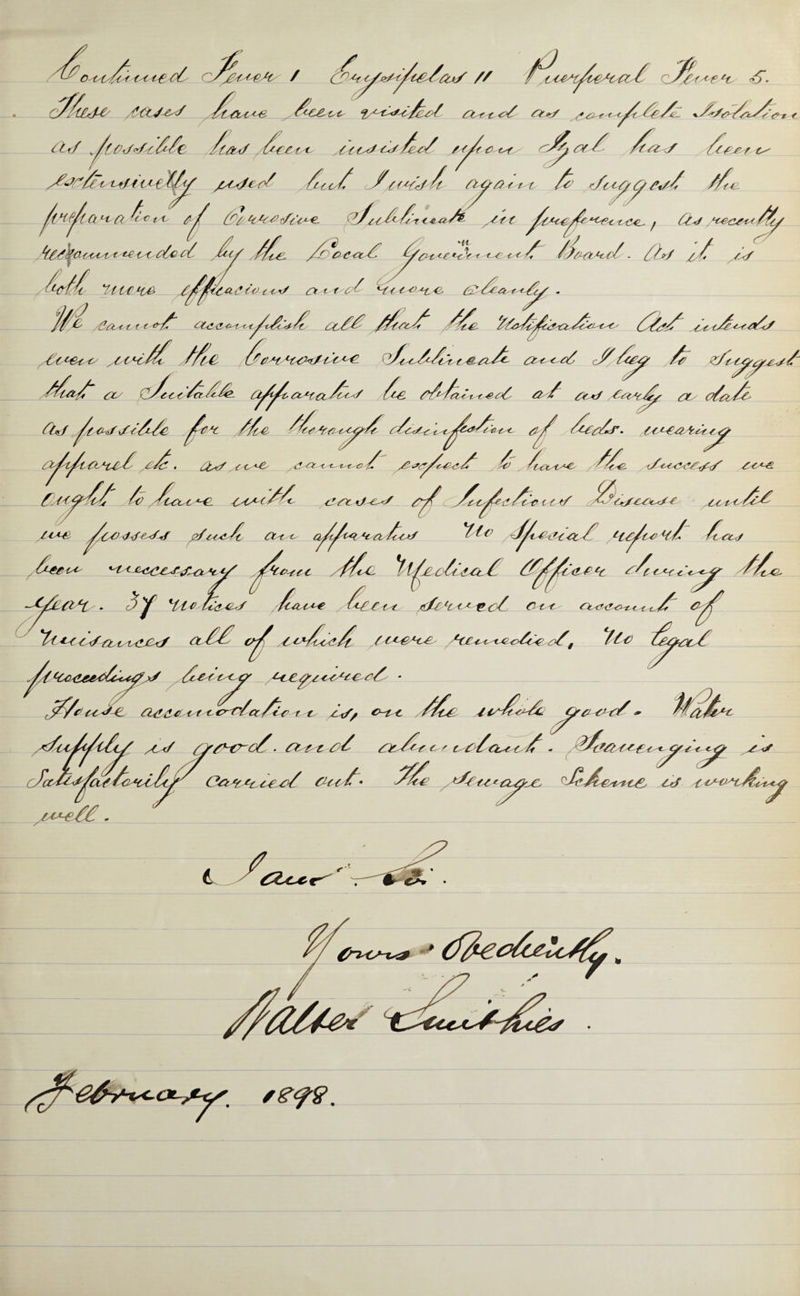 Continued Fever 1 Erysipelas 11 Puerperal Fever 5.
These cases have been visited and as complete Isolation
as possible has been insisted upon Izal has been
extensivelly used but I wish again to suggest the
preparation of Corrosive Sublimate in preference, as recently
recommended by the Local Government Board. As it is
both more efficacious and more cleanly.
We cannot accomplish all that the Notification Act intends
even with the Corrosive Sublimate and I beg to suggest
that a Suitable apparatus be obtained at as early a date
as possible for the thorough disinfection of beds. wearing
apparel etc. as we cannot expect to have the success we
ought to have with cases of Infectious Disease until
we possess such an apparatus No Special report has
been neccessary from the Medical Officer during the
year. 37 notices have been served on account of
Nuisances all of which were remedied, No legal
proceedings being required.
House accommodation is, on the whole good. Water
supply is good. and abundant. Scavenging is
Satisfactorily carried out. The sewage Scheme is working
well.
I am Sir.
Yours Obediently.
Walter Smithies.
February. 1898.